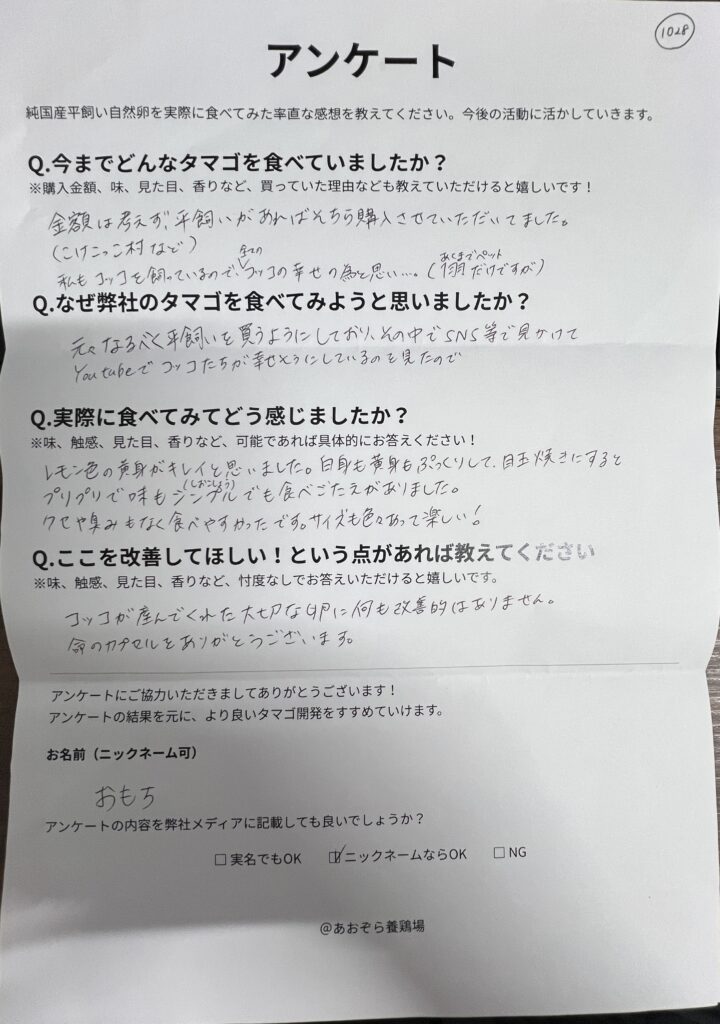 1028
アンケート
純国産平飼い自然卵を実際に食べてみた率直な感想を教えてください。今後の活動に活かしていきます。
Q.今までどんなタマゴを食べていましたか？
※購入金額、味、見た目、香りなど、買っていた理由なども教えていただけると嬉しいです！
金額は考えず、平飼いがあればそちら購入させていただいてました。
(こけこっこ村など)
私もコッコを飼っているので、全てのコッコの幸せの為と思い…。(あくまでペット 1羽だけですが)
Q.なぜ弊社のタマゴを食べてみようと思いましたか？
元々なるべく平飼いを買うようにしており、その中でSNS等で見かけて
Youtubeでコッコたちが幸せそうにしているのを見たので
Q.実際に食べてみてどう感じましたか？
※味、触感、見た目、香りなど、可能であれば具体的にお答えください！
レモン色の黄身がキレイと思いました。白身も黄身もぷっくりして、目玉焼きにすると
プリプリで味もシンプル(しおこしょう)でも食べごたえがありました。
クセや臭みもなく食べやすかったです。サイズも色々あって楽しい！
Q.ここを改善してほしい！という点があれば教えてください
※味、触感、見た目、香りなど、忖度なしでお答えいただけると嬉しいです。
コッコが産んでくれた大切な卵に何も改善的はありません。
命のカプセルをありがとうございます。
アンケートにご協力いただきましてありがとうございます！
アンケートの結果を元に、より良いタマゴ開発をすすめていけます。
お名前（ニックネーム可）
おもち
アンケートの内容を弊社メディアに記載しても良いでしょうか？
□ 実名でもOK ☑ ニックネームならOK □ NG
@あおぞら養鶏場